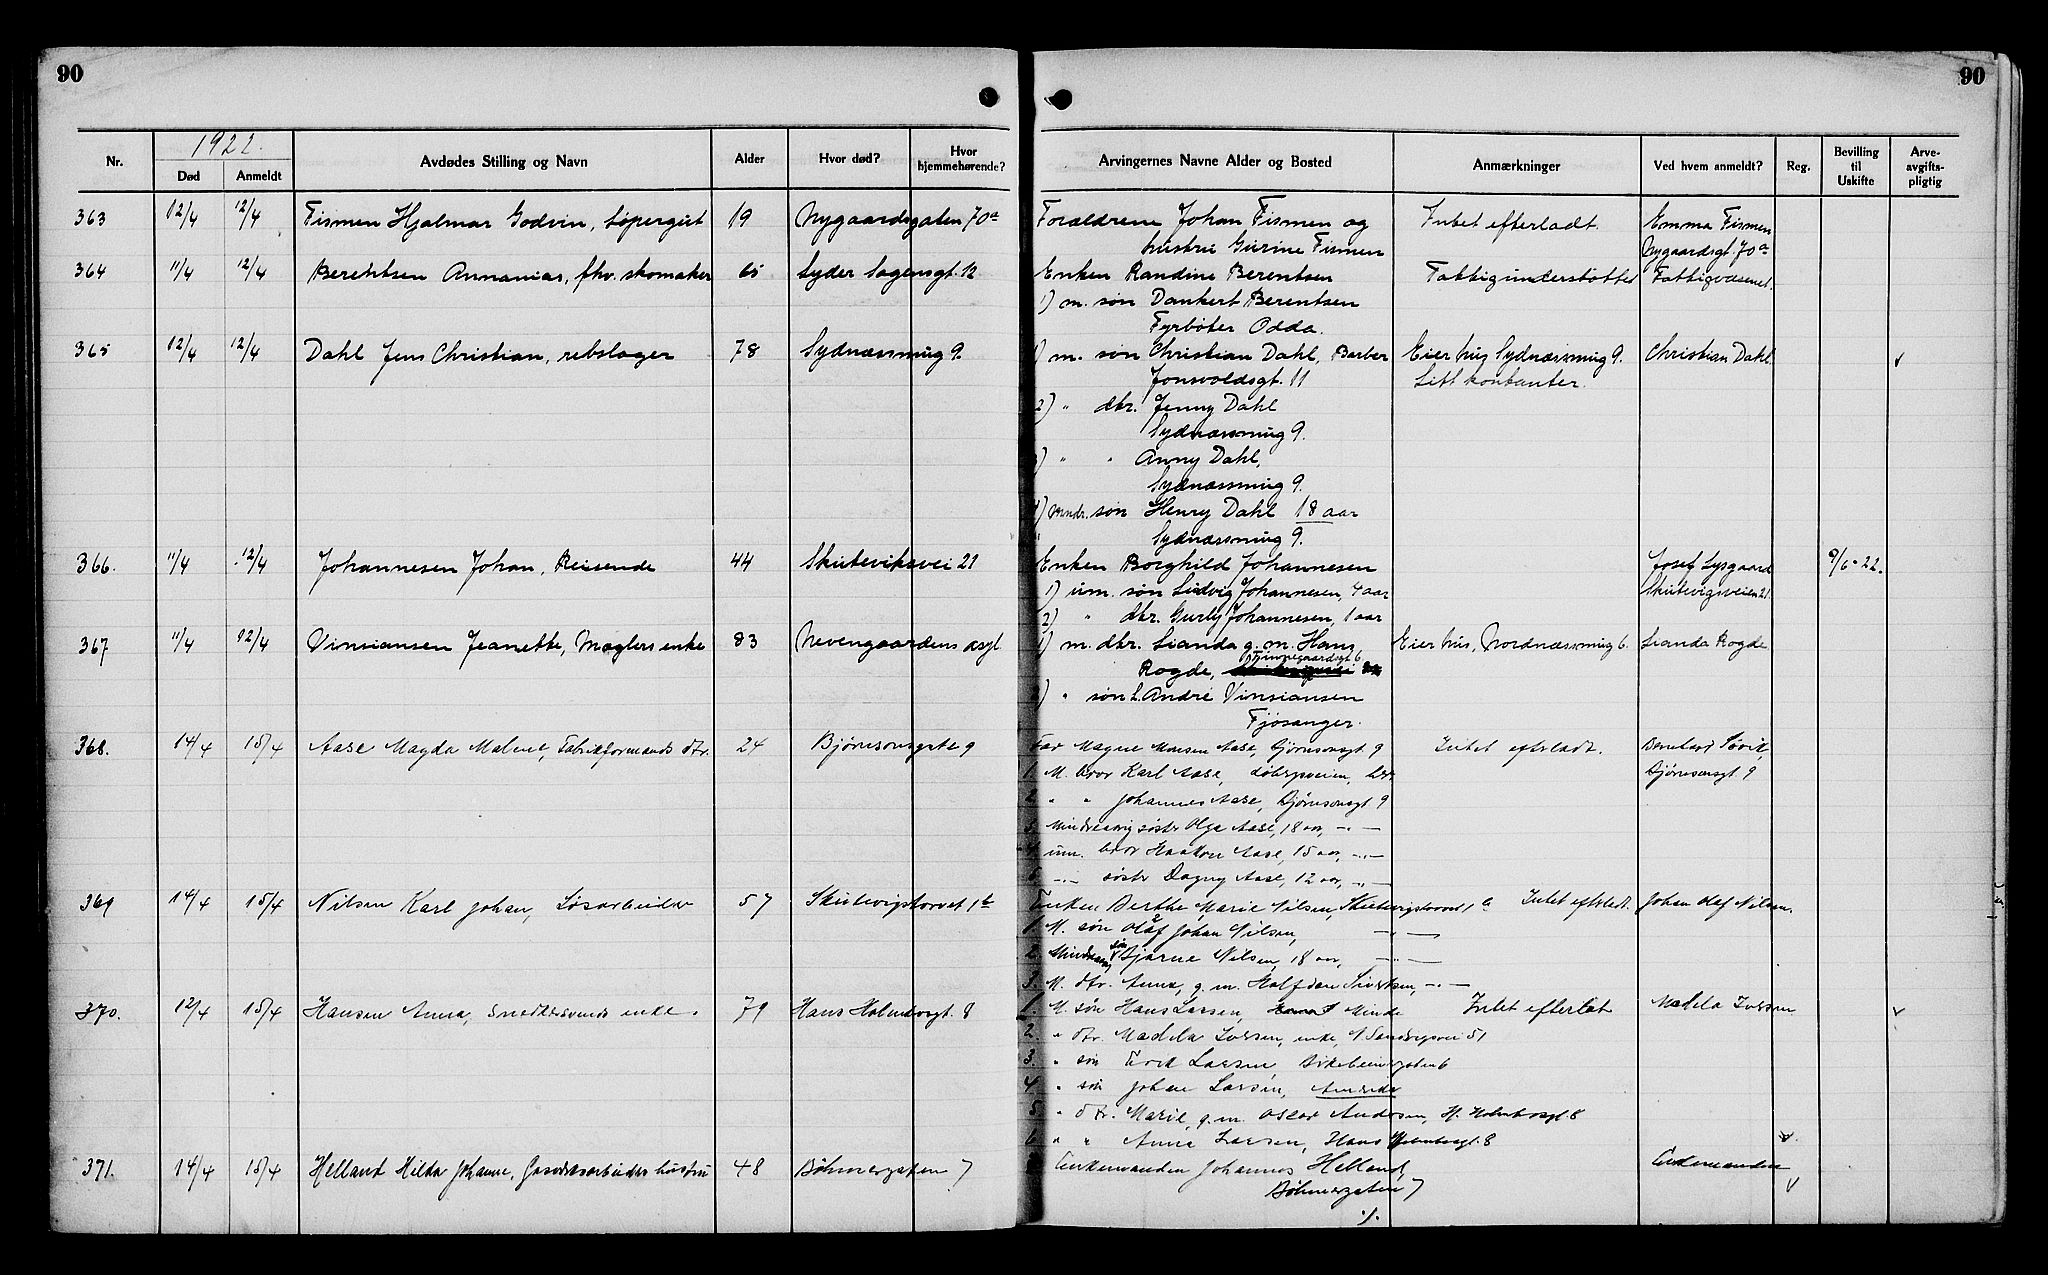 90
90
1922.
Nr.
Død
Anmeldt
Avdødes Stilling og Navn
Alder
Hvor død?
Hvor hjemmehørende?
Arvingernes Navne Alder og Bosted
Anmærkninger
Ved hvem anmeldt?
Reg.
Bevilling til Uskifte
Arve-avgifts-pligtig
363 12/4 12/4 Fismen Hjalmar Godvin, løpergut 19 Nygaardsgaten 70a Forældrene Johan Fismen og Intet efterladt. Emma Fismen
hustru Gurine Fismen Nygaardsgt. 70a
364 11/4 12/4 Berentsen Annanias, fhv. skomaker 65 Lyder Sagensgt. 12 Enken Randine Berentsen Fattigunderstøttet Fattigvæsenet.
1) m. søn Dankert Berentsen
Fyrbøter Odda.
365 12/4 12/4 Dahl Jens Christian, rebslager 78 Sydnæssmug 9. 1) m. søn Christian Dahl, Barber Eier hus Sydnæssmug 9. Christian Dahl.
Jonsvoldsgt. 11 Litt kontanter.
2) " dtr. Jenny Dahl
Sydnæssmug 9.
3) " " Anny Dahl,
Sydnæssmug 9.
4) mndr. søn Henry Dahl 18 aar
Sydnæssmug 9.
366. 11/4 12/4 Johannesen Johan, Reisende 44 Skuteviksvei 21 Enken Borghild Johannesen Josef Lysgaard 9/6-22.
1) um. søn Ludvig Johannesen, 4 aar Skutevigsveien 21
2) " dtr. Gurly Johannesen, 1 aar
367 11/4 12/4 Vinsiansen Jeanette, Mæglers enke 83 Nevengaardens asyl 1) m. dtr. Lianda g. m. Hans Eier hus, Nordnæssmug 6. Lianda Rogde
Rogde,
2) " søn L. André Vinsiansen
Fjøsanger.
368. 14/4 15/4 Aase Magda Malene, Fabrikformands dtr. 24 Bjørnsonsgate 9 Far Magne Monsen Aase, Bjørnsonsgt 9 Intet efterladt. Bernhard Søvik,
1. M. bror Karl Aase, Bjørnsonsgt. 9
2. " " Johannes Aase, Bjørnsonsgt 9
3. Mindreaarig søster Olga Aase, 18 aar, -"-
4. um. bror Haakon Aase, 15 aar, -"-
5. -"- søster Dagny Aase, 12 aar, -"-
369 14/4 15/4 Nilsen Karl Johan, Løsarbeider 57 Skutevigstorvet 1b Enken Berthe Marie Nilsen, Skutevigstorvet 1b Intet efterladt. Johan Olaf Nilsen.
1. M. søn Olaf Johan Nilsen, -"-
2. Mindreaarig søn Bjarne Nilsen, 18 aar, -"-
3. M. dtr. Anna, g. m. Halfdan Sivertsen, -"-
370. 12/4 15/4 Hansen Anna, Snedkersvends enke. 79 Hans Holmbosgt. 8 1. M. søn Hans Larsen, Minde Intet efterlat Madela Iversen
2. " dtr. Madela Iversen, enke, N Sandvigsvei 51
3. " søn Erik Larsen, Birkebeinergaten 6
4. " søn Johan Larsen, Amerika
5. " dtr. Marie, g. m. Oscar Andersen, H. Holmbosgt. 8
6. " " Anna Larsen, Hans Holmbosgt. 8
371. 14/4 15/4 Helland Hilda Johanne, Gasverksarbeiders hustru 48 Bøhmergaten 7 Enkemanden Johannes Helland, Enkemanden
Bøhmergaten 7
./.